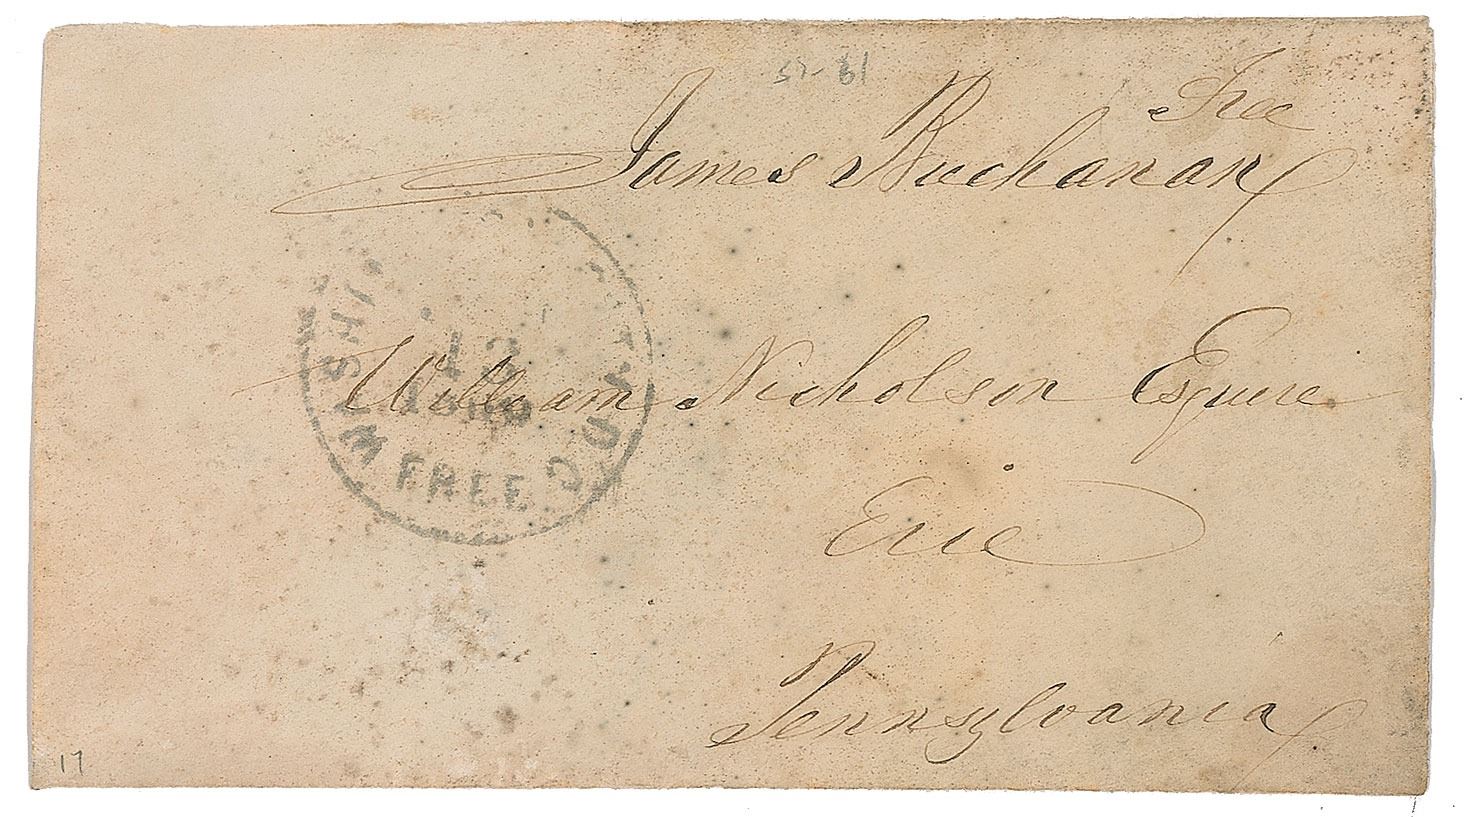 57-61
Free
James Buchanan
WASHI
D.C.
12
FREE
William Nicholson Esquire
Erie
Pennsylvania
17